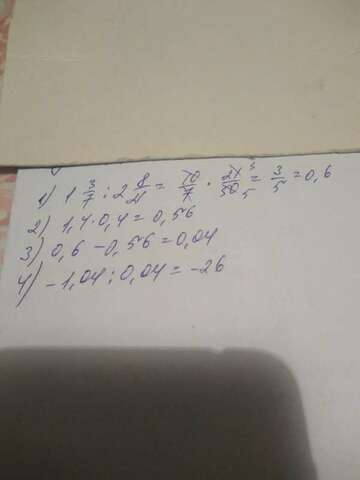 1) 1 3/7 : 2 8/21 = 10/7 · 21/50 3 5 = 3/5 = 0,6
2) 1,4 · 0,4 = 0,56
3) 0,6 - 0,56 = 0,04
4) -1,04 : 0,04 = -26